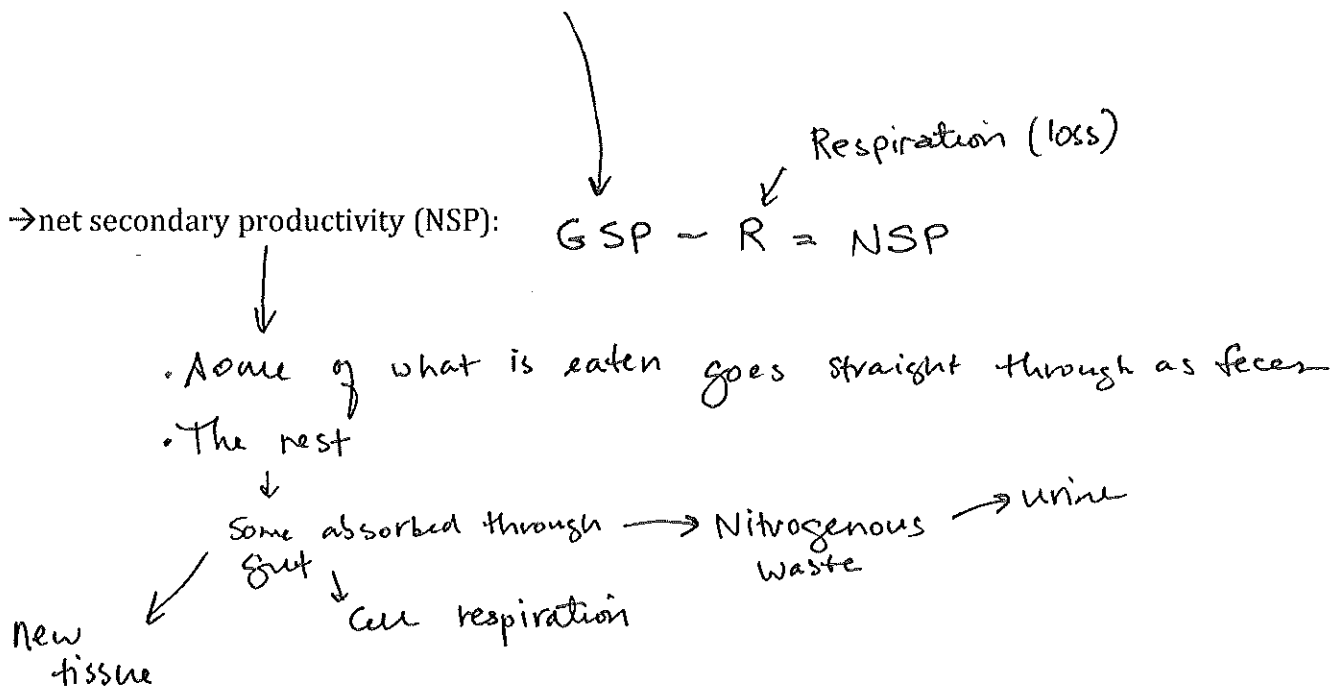 Respiration (loss)
→net secondary productivity (NSP): GSP - R = NSP
· Some of what is eaten goes straight through as feces
· The rest
Some absorbed through → Nitrogenous → urine
gut waste
Cell respiration
new
tissue